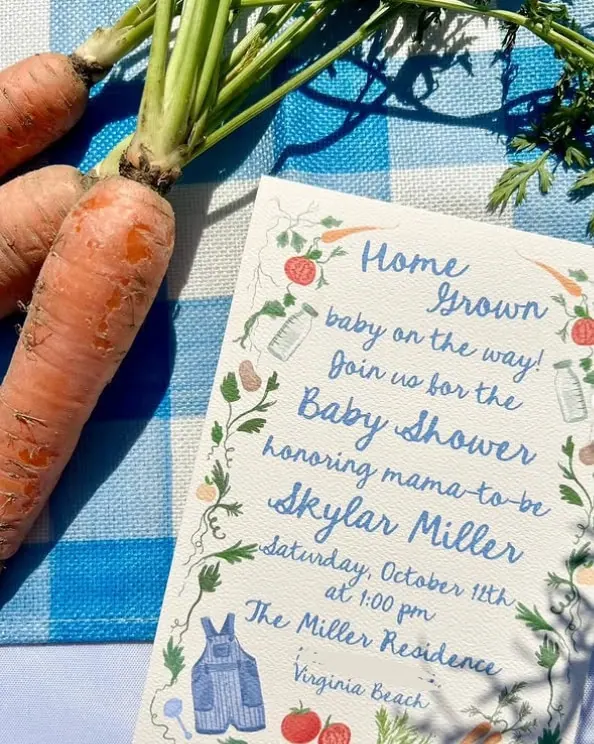 Home
Grown
baby on the way!
Join us for the
Baby Shower
honoring mama-to-be
Skylar Miller
Saturday, October 12th
at 1:00 pm
The Miller Residence
Virginia Beach